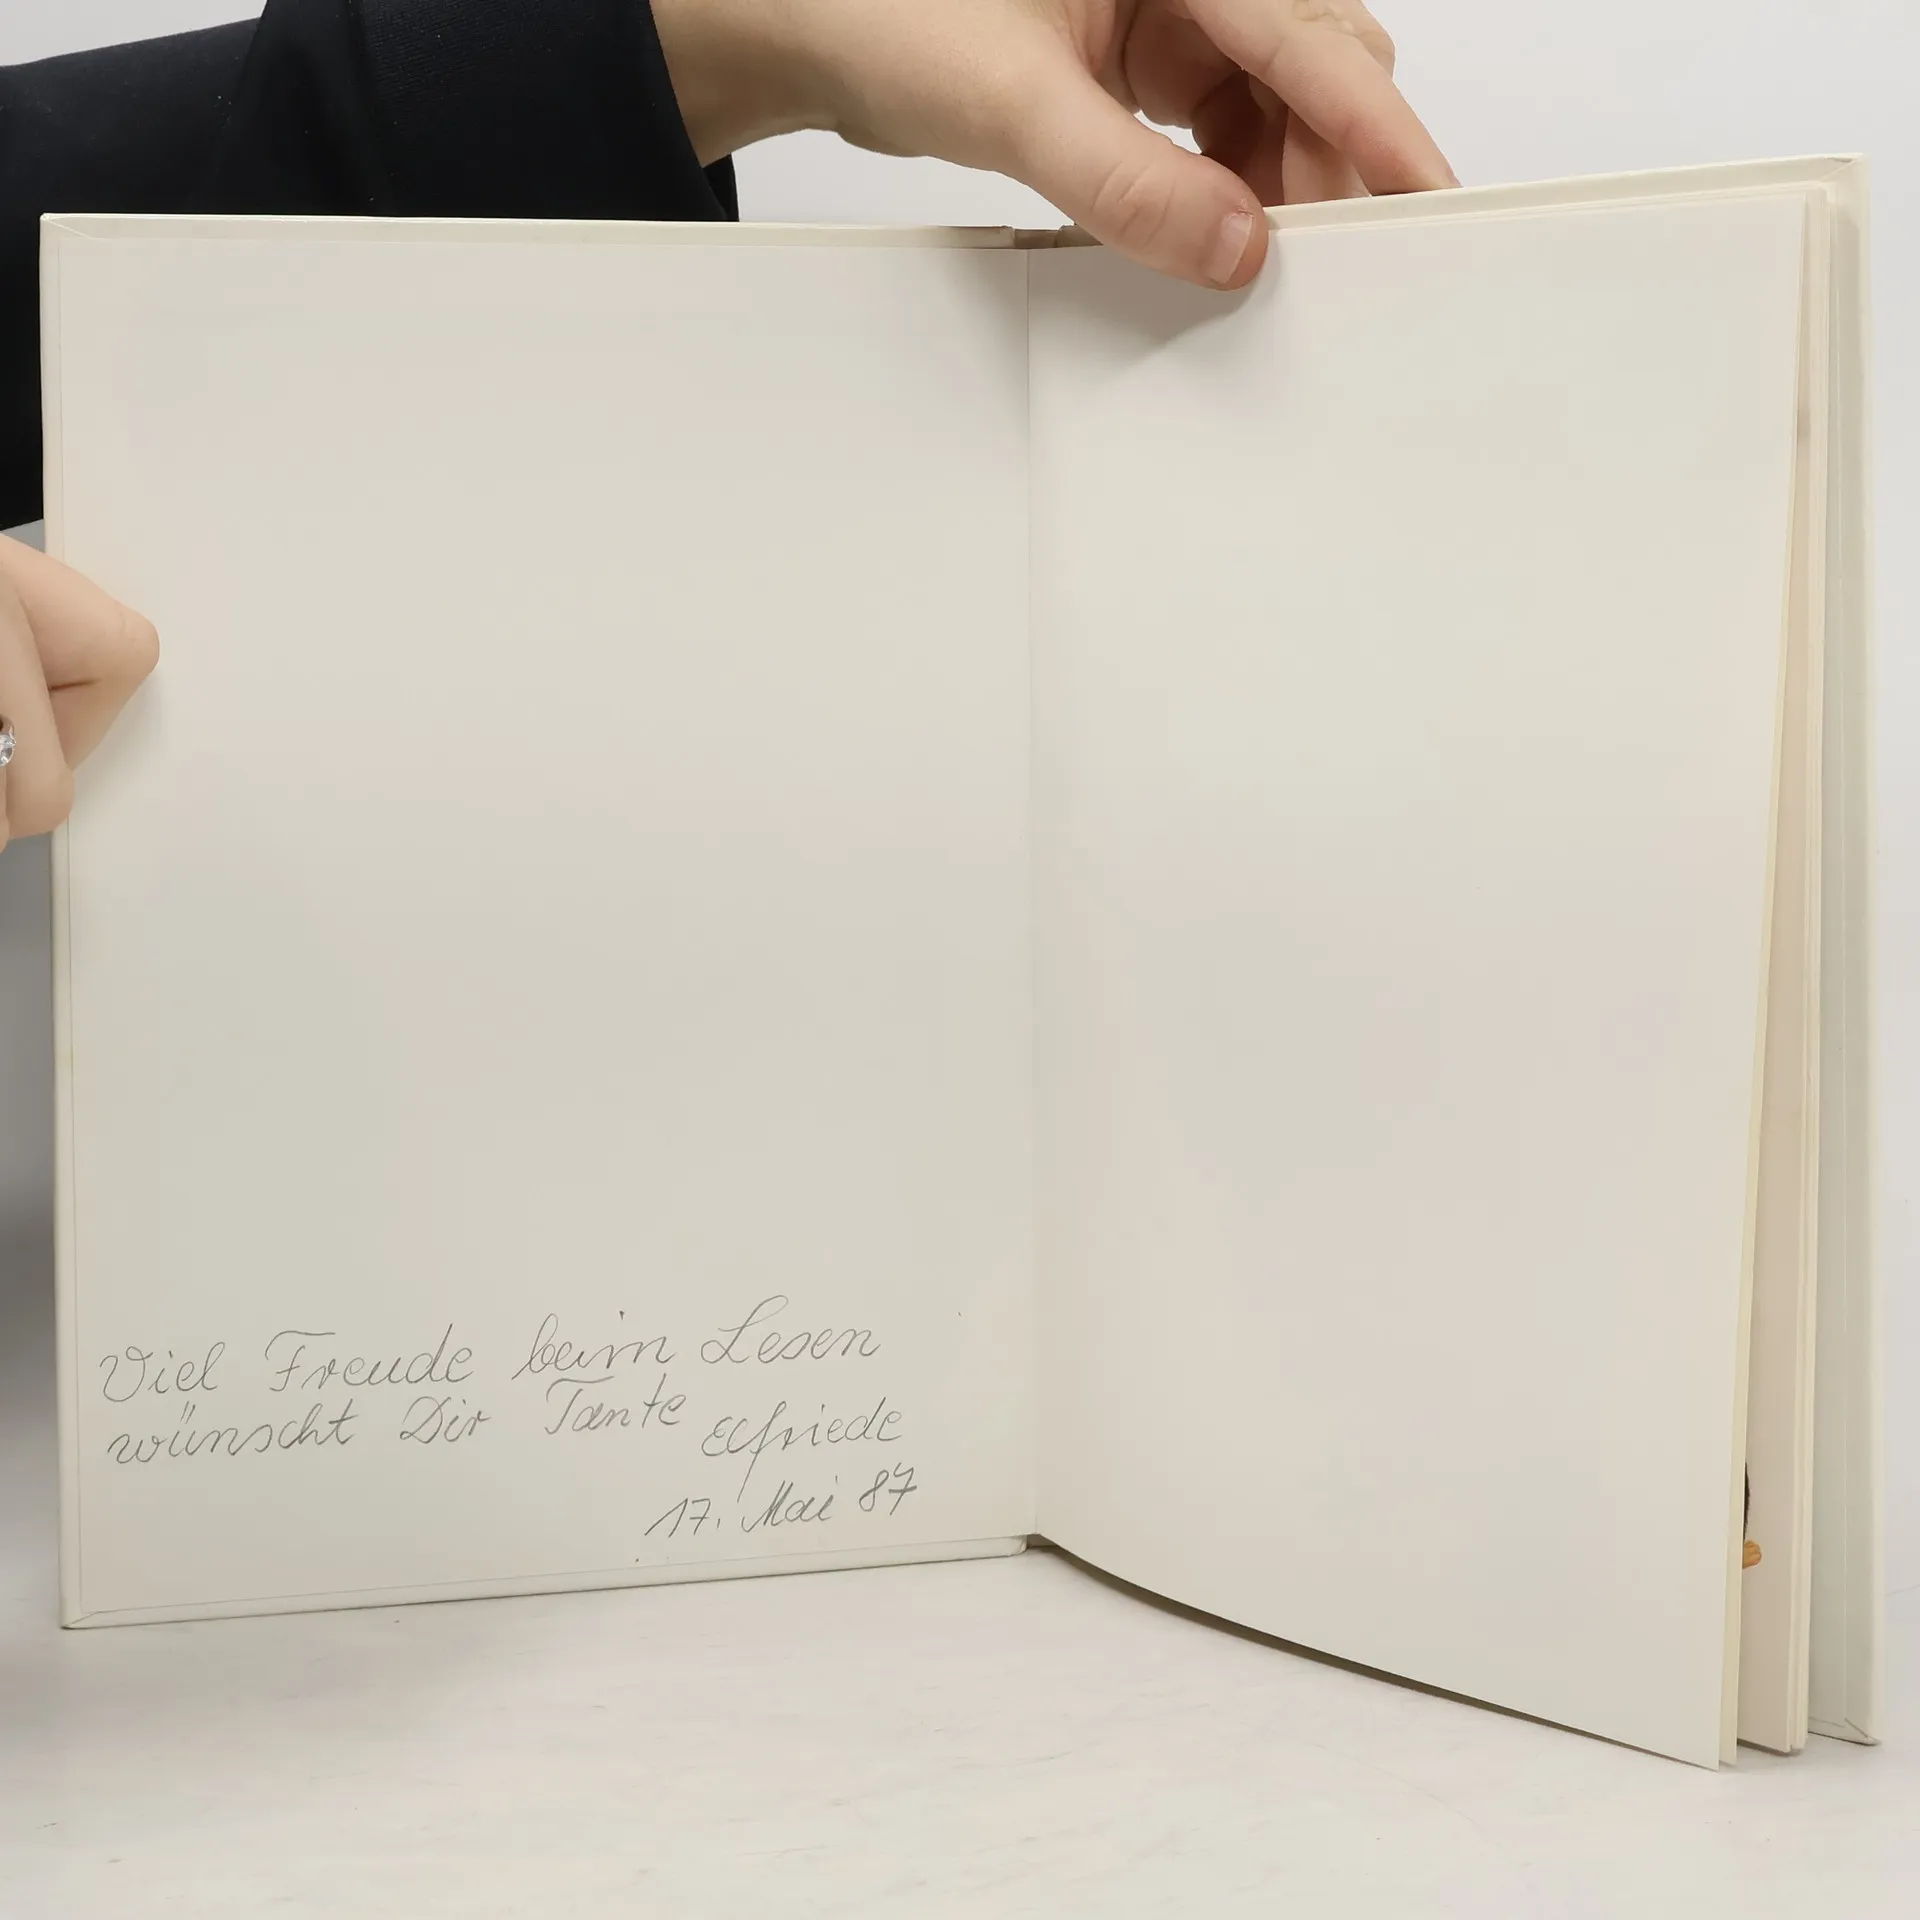 Viel Freude beim Lesen
wünscht Dir Tante Elfriede
17. Mai 87